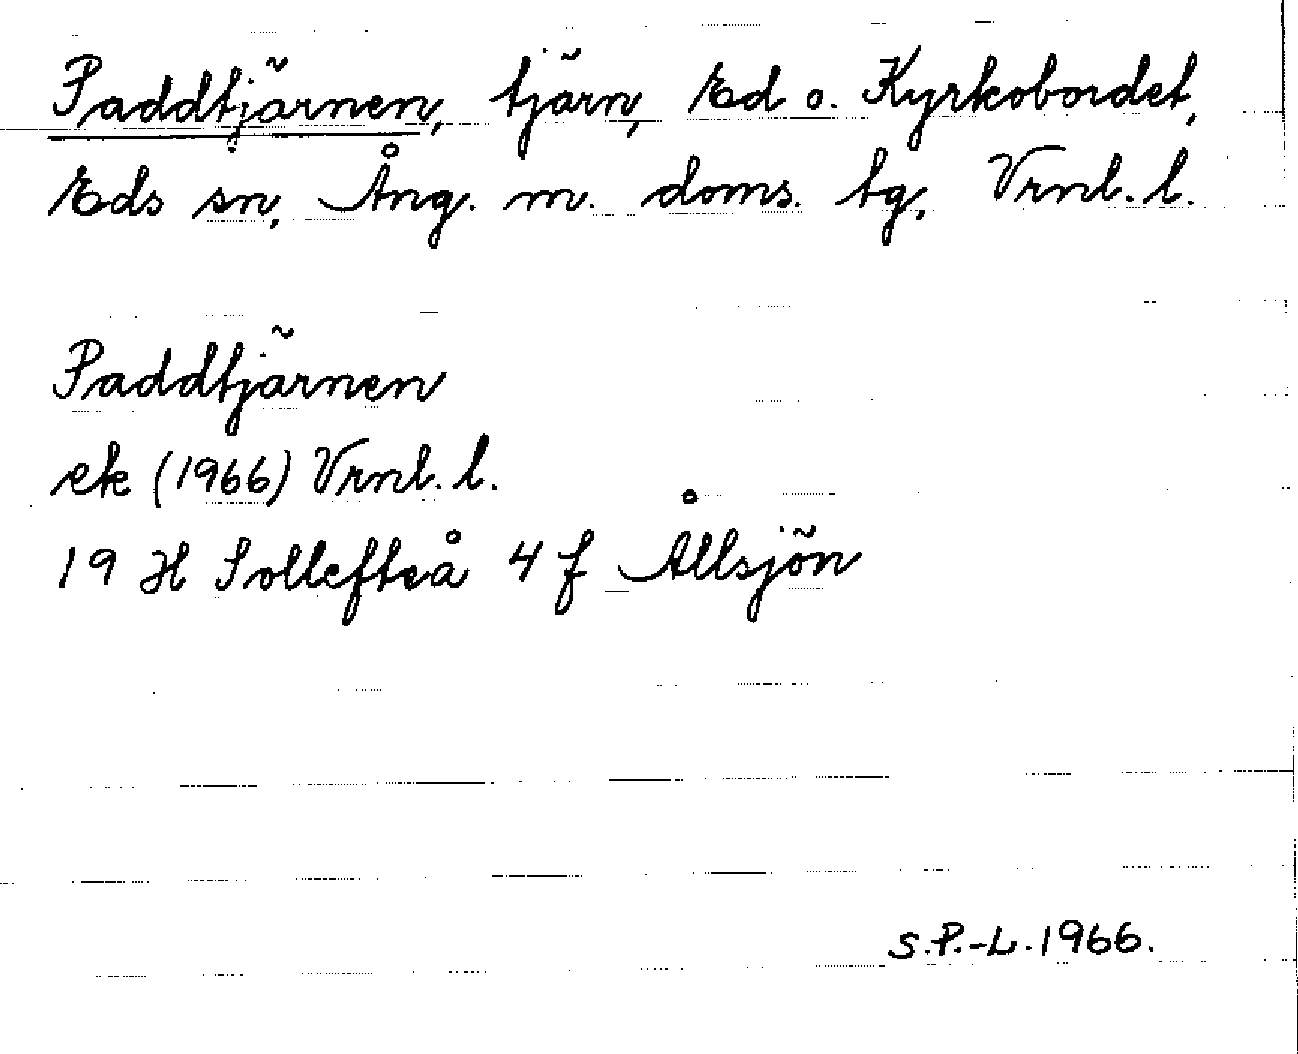 Paddtjärnen, tjärn, Ed o. Kyrkobordet,
Eds sn, Ång. m. doms. tg, Vrnl. l.
Paddtjärnen
ek (1966) Vrnl. l.
19 H Sollefteå 4 f Ållsjön
S.P.-L. 1966.